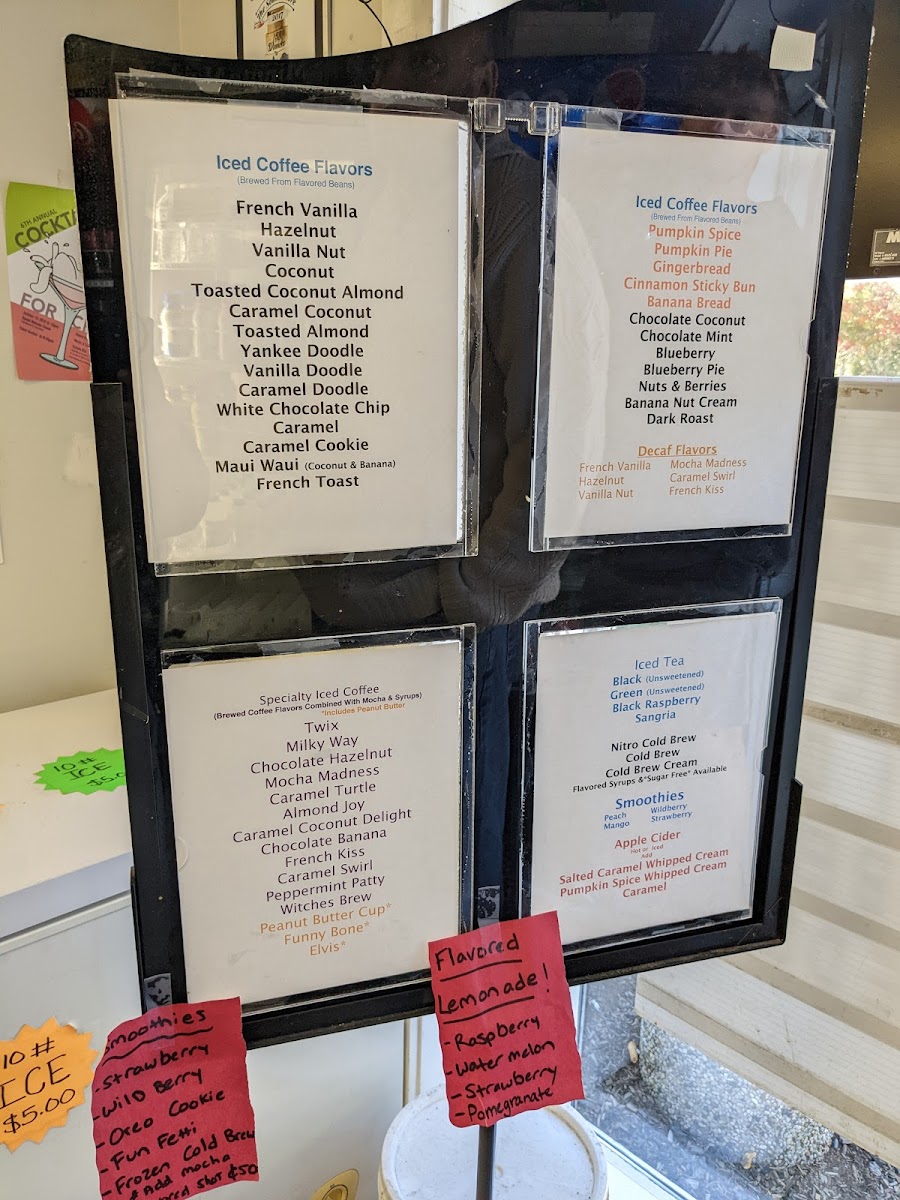 6TH ANNUAL
COCKT
FOR
Iced Coffee Flavors
(Brewed From Flavored Beans)
French Vanilla
Hazelnut
Vanilla Nut
Coconut
Toasted Coconut Almond
Caramel Coconut
Toasted Almond
Yankee Doodle
Vanilla Doodle
Caramel Doodle
White Chocolate Chip
Caramel
Caramel Cookie
Maui Waui (Coconut & Banana)
French Toast
Iced Coffee Flavors
(Brewed From Flavored Beans)
Pumpkin Spice
Pumpkin Pie
Gingerbread
Cinnamon Sticky Bun
Banana Bread
Chocolate Coconut
Chocolate Mint
Blueberry
Blueberry Pie
Nuts & Berries
Banana Nut Cream
Dark Roast
Decaf Flavors
French Vanilla Mocha Madness
Hazelnut Caramel Swirl
Vanilla Nut French Kiss
Specialty Iced Coffee
(Brewed Coffee Flavors Combined With Mocha & Syrups)
*Includes Peanut Butter
Twix
Milky Way
Chocolate Hazelnut
Mocha Madness
Caramel Turtle
Almond Joy
Caramel Coconut Delight
Chocolate Banana
French Kiss
Caramel Swirl
Peppermint Patty
Witches Brew
Peanut Butter Cup*
Funny Bone*
Elvis*
Iced Tea
Black (Unsweetened)
Green (Unsweetened)
Black Raspberry
Sangria
Nitro Cold Brew
Cold Brew
Cold Brew Cream
Flavored Syrups &*Sugar Free* Available
Smoothies
Peach Wildberry
Mango Strawberry
Apple Cider
Hot or Iced
Add
Salted Caramel Whipped Cream
Pumpkin Spice Whipped Cream
Caramel
10#
ICE
$5.0
10#
ICE
$5.00
Smoothies
-Strawberry
-Wild Berry
-Oreo Cookie
-Fun Fetti
-Frozen Cold Brew
Add mocha
shot $.50
Flavored
Lemonade!
-Raspberry
-Watermelon
-Strawberry
-Pomegranate